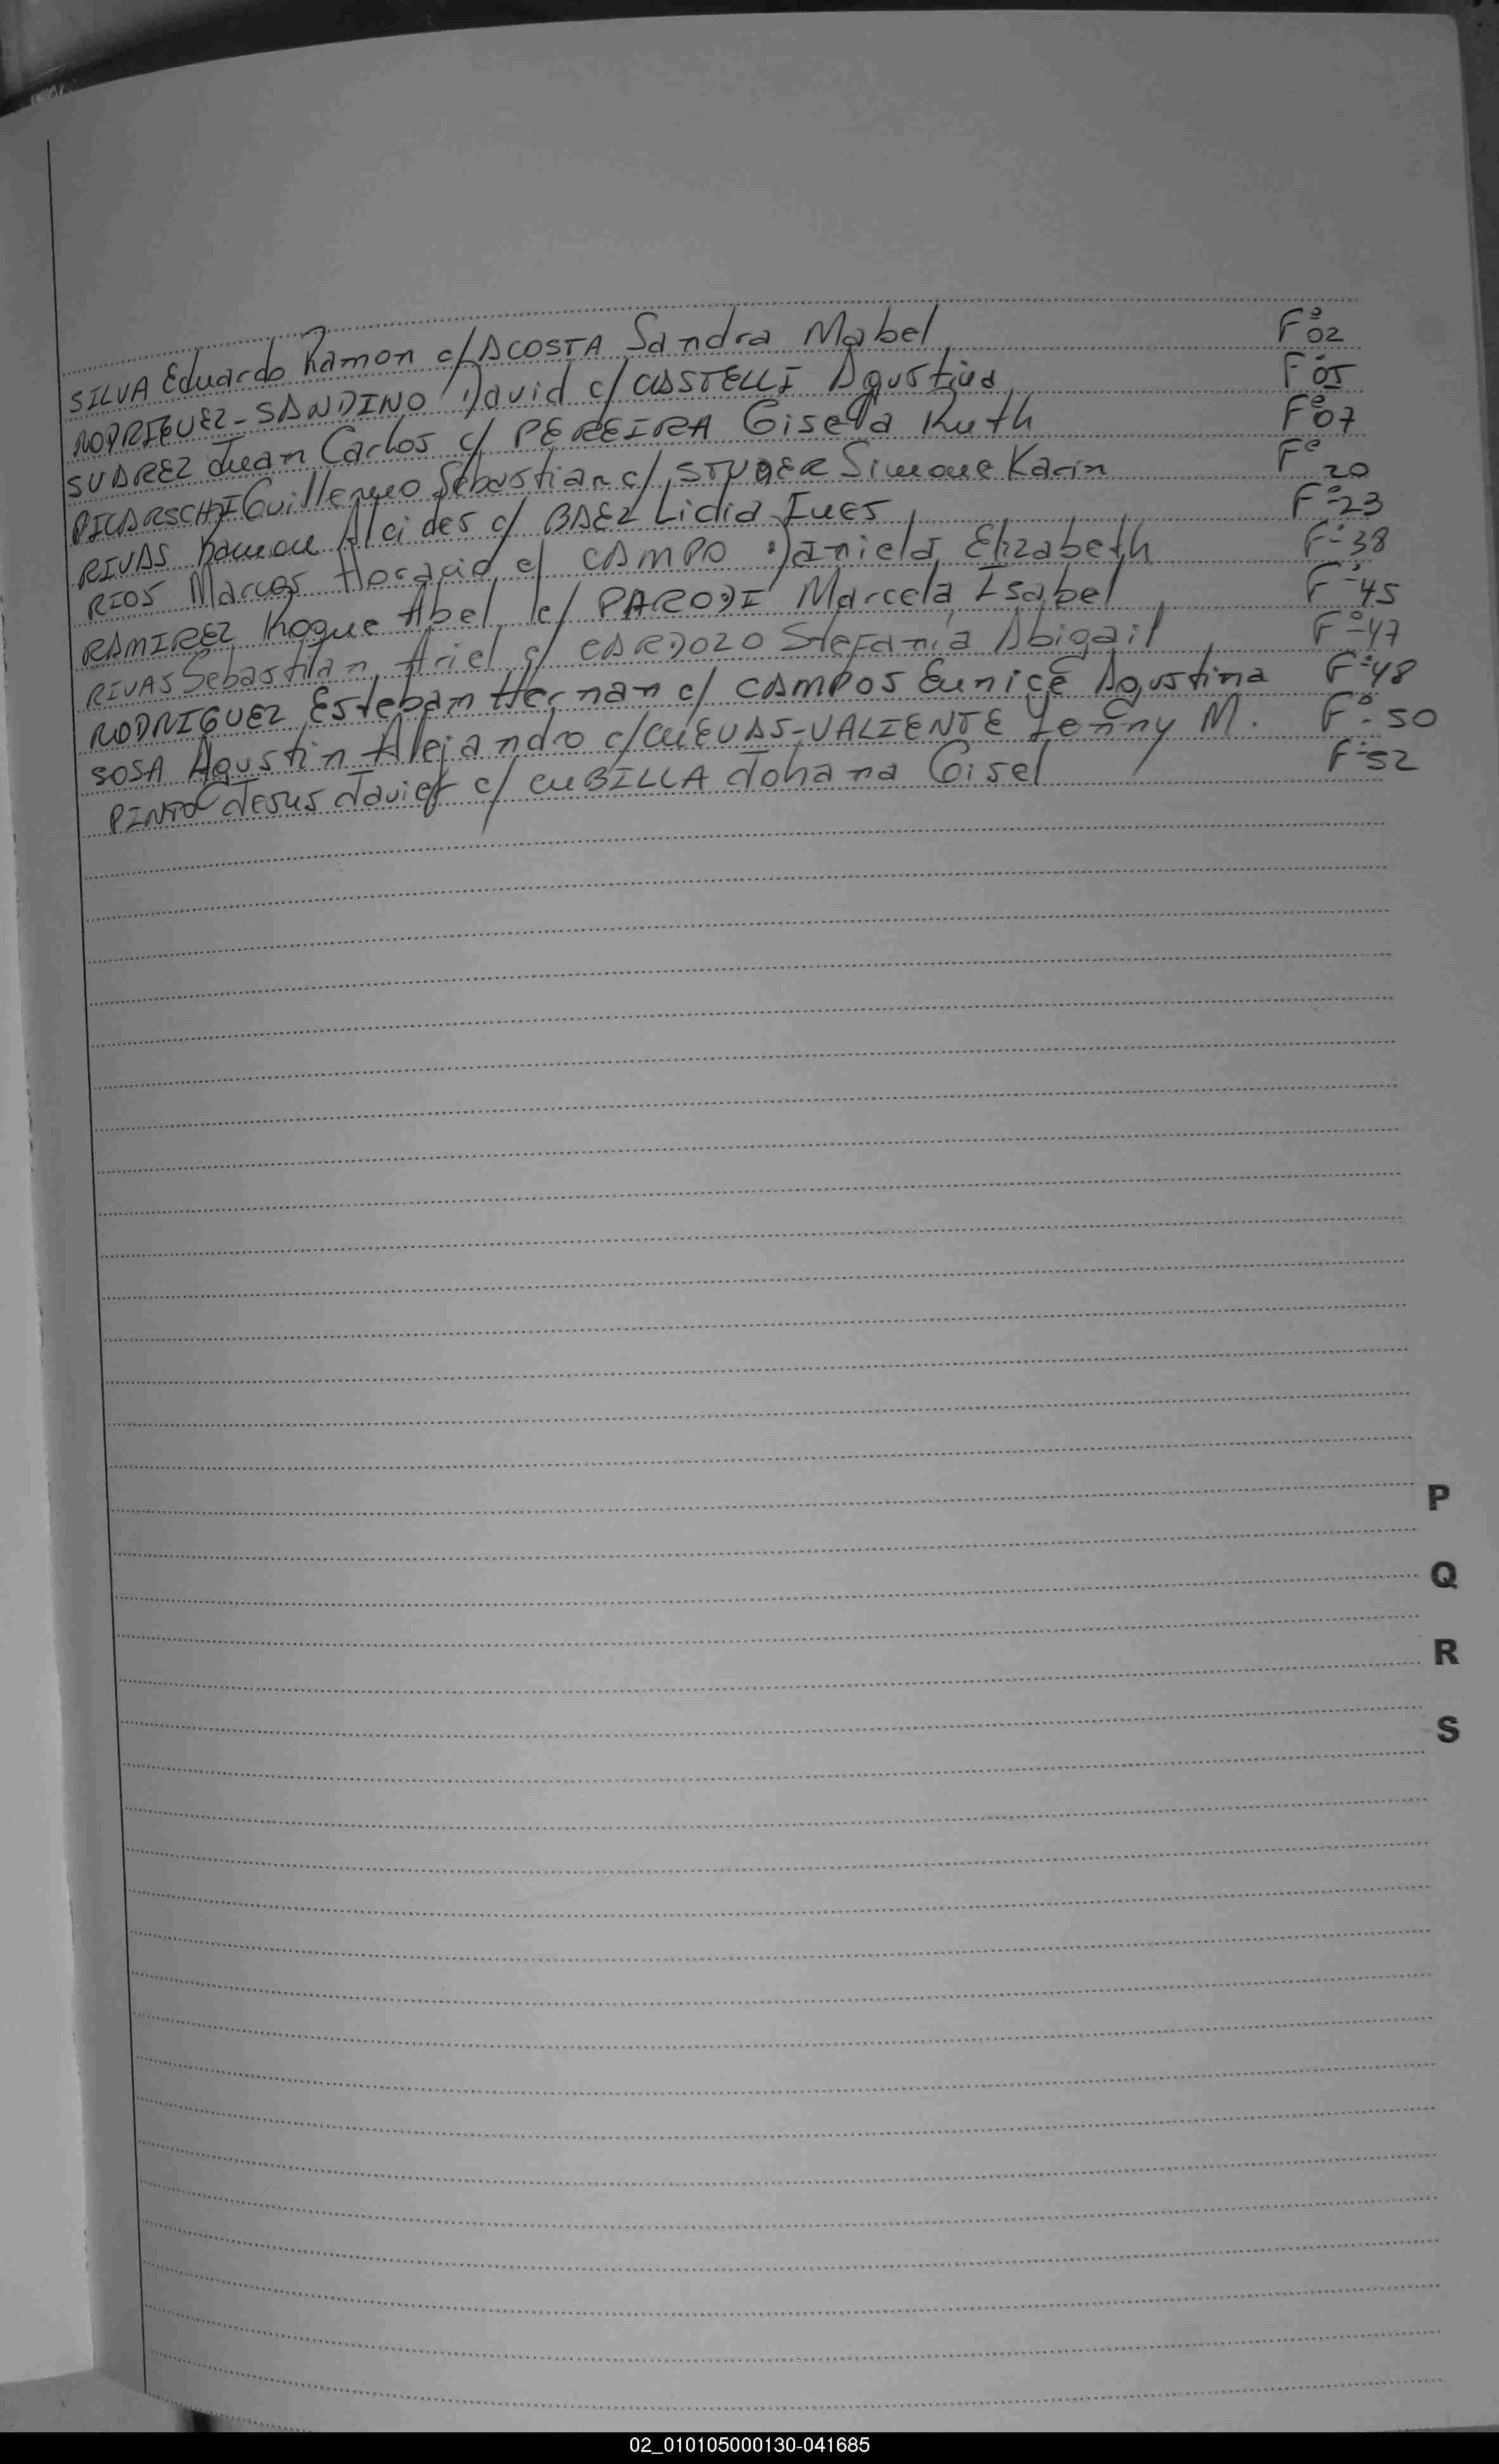 SILVA Eduardo Ramon c/ ACOSTA Sandra Mabel F° 02
RODRIGUEZ-SANDINO David c/ CASTELLI Agustina F° 05
SUAREZ Juan Carlos c/ PEREIRA Gisela Ruth F° 07
Guillermo Sebastian c/ STUDER Simone Karin F° 20
RIVAS Ramon Alcides c/ BAEZ Lidia Ines F° 23
RIOS Marcos Horacio c/ CAMPO Daniela Elizabeth F° 38
RAMIREZ Roque Abel c/ PARODI Marcela Isabel F° 45
RIVAS Sebastian Ariel c/ CARDOZO Stefania Abigail F° 47
RODRIGUEZ Esteban Hernan c/ CAMPOS Eunice Agustina F° 48
SOSA Agustin Alejandro c/ CUEVAS-VALIENTE Yenny M. F° 50
PINTO Jesus Javier c/ CUBILLA Johana Gisel F° 52
P
Q
R
S
02_010105000130-041685